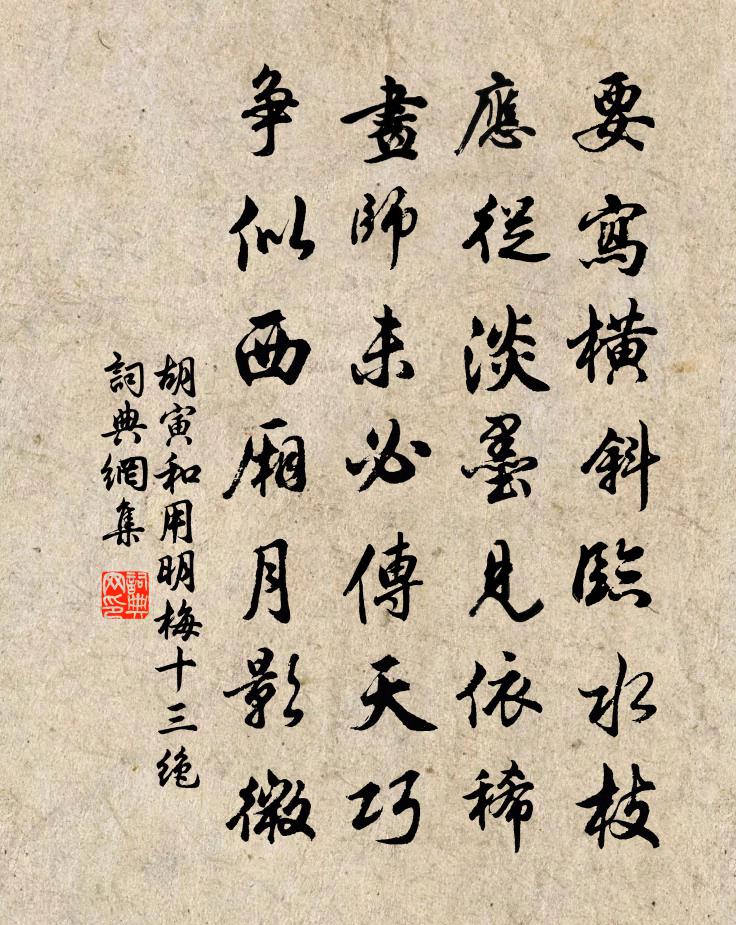 要寫橫斜臨水枝
應從淡墨見依稀
畫師未必傳天巧
争似西厢月影微
胡寅和用明梅十三絶
詞典網集
詞典网印